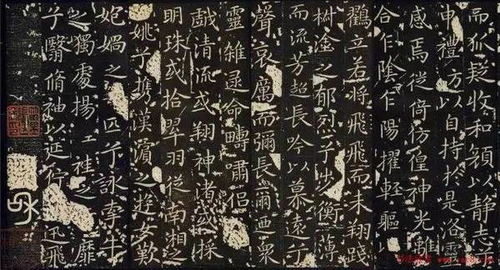 而狐疑收和顏以静志
申禮防以自持於是洛靈
感焉徙倚仿偟神光離
合乍陰乍陽擢輕軀
鸛立若將飛飛而未翔踐
椒塗之郁烈兮步衡薄
而流芳超長吟以慕遠兮
聲哀厲而彌長爾乃衆
靈雜遝命疇肅侶
戲清流或翔神渚或採
明珠或拾翠羽從南湘之
姚兮攜漢濱之遊女歎
妃媧之匹兮詠牽牛
之獨處揚袿之靡
兮翳脩袖以延佇迅飛